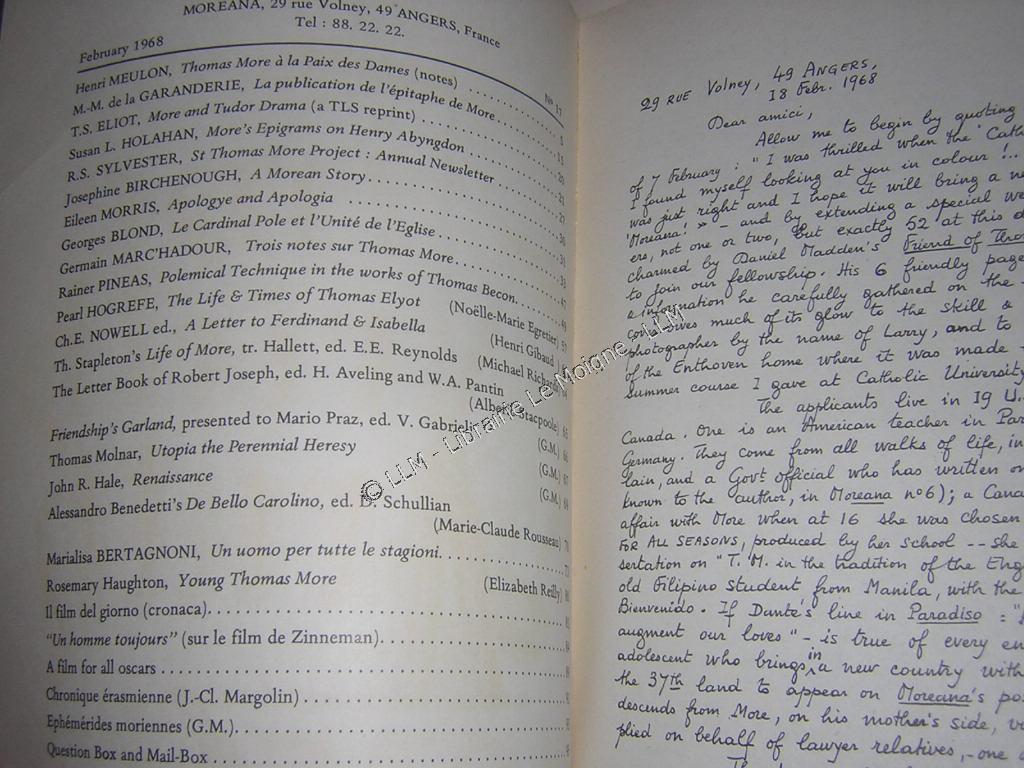 MOREANA, 29 rue Volney, 49 ANGERS, France
Tel : 88. 22. 22.
February 1968
N° 17
Henri MEULON, Thomas More à la Paix des Dames (notes)
M.-M. de la GARANDERIE, La publication de l'épitaphe de More 5
T.S. ELIOT, More and Tudor Drama (a TLS reprint)
Susan L. HOLAHAN, More's Epigrams on Henry Abyngdon
R.S. SYLVESTER, St Thomas More Project : Annual Newsletter 20
Josephine BIRCHENOUGH, A Morean Story 21
Eileen MORRIS, Apologye and Apologia 27
Georges BLOND, Le Cardinal Pole et l'Unité de l'Eglise 30
Germain MARC'HADOUR, Trois notes sur Thomas More
Rainer PINEAS, Polemical Technique in the works of Thomas Becon. 47
Pearl HOGREFE, The Life & Times of Thomas Elyot
(Noëlle-Marie Egretier) 49
Ch.E. NOWELL ed., A Letter to Ferdinand & Isabella
(Henri Gibaud) 57
Th. Stapleton's Life of More, tr. Hallett, ed. E.E. Reynolds
(Michael Richards) 64
The Letter Book of Robert Joseph, ed. H. Aveling and W.A. Pantin
(Albert Stacpoole) 65
Friendship's Garland, presented to Mario Praz, ed. V. Gabrieli
(G.M.) 66
Thomas Molnar, Utopia the Perennial Heresy
(G.M.) 67
John R. Hale, Renaissance
(G.M.) 69
Alessandro Benedetti's De Bello Carolino, ed. D. Schullian
(Marie-Claude Rousseau) 70
Marialisa BERTAGNONI, Un uomo per tutte le stagioni. 73
Rosemary Haughton, Young Thomas More (Elizabeth Reilly)
Il film del giorno (cronaca).
"Un homme toujours" (sur le film de Zinneman).
A film for all oscars
Chronique érasmienne (J.-Cl. Margolin)
Ephémérides moriennes (G.M.).
Question Box and Mail-Box
29 RUE Volney, 49 ANGERS,
18 Febr. 1968
Dear amici,
Allow me to begin by quoting
of 7 February : "I was thrilled when the Cath
I found myself looking at you in colour !..
was just right and I hope it will bring a ne
'Moreana'! » – and by extending a special we
ers, not one or two, but exactly 52 at this d
charmed by Daniel Madden's Friend of Tho
to join our fellowship. His 6 friendly page
& information he carefully gathered on the
owes much of its glow to the skill &
photographer by the name of Larry, and to
of the Enthoven home where it was made
summer course I gave at Catholic University
The applicants live in 19 U.
Canada. One is an American teacher in Par
Germany. They come from all walks of life, in
lain, and a Govt official who has written on
known to the author, in Moreana n°6); a Cana
affair with More when at 16 she was chosen
FOR ALL SEASONS, produced by her school -- she
sertation on "T.M. in the tradition of the Eng
old Filipino student from Manila, with the
Bienvenido. If Dante's line in Paradiso : "
augment our loves" – is true of every en
adolescent who brings in a new country with
the 37th land to appear on Moreana's po
descends from More, on his mother's side, v
plied on behalf of lawyer relatives, - one
© LLM - Librairie Le Moigne - LLM